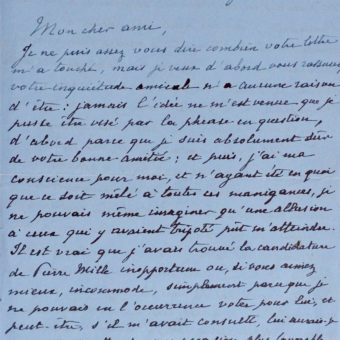 Mon cher ami,
Je ne puis assez vous dire combien votre lettre
m'a touché, mais je veux d'abord vous rassurer
votre inquiétude amicale n'a aucune raison
d'être : jamais l'idée ne m'est venue que je
pusse être visé par la phrase en question,
d'abord parce que je suis absolument sûr
de votre bonne amitié ; et puis, j'ai ma
conscience pour moi, et n'ayant été en quoi
que ce soit mêlé à toutes ces manigances, je
ne pouvais même imaginer qu'une allusion
à ceux qui y avaient tripoté pût m'atteindre.
Il est vrai que j'avais trouvé la candidature
de Pierre Mille inopportune ou, si vous aimez
mieux, incommode, simplement parce que je
ne pouvais en l'occurrence voter pour lui, et
peut-être, s'il m'avait consulté, lui aurais-je